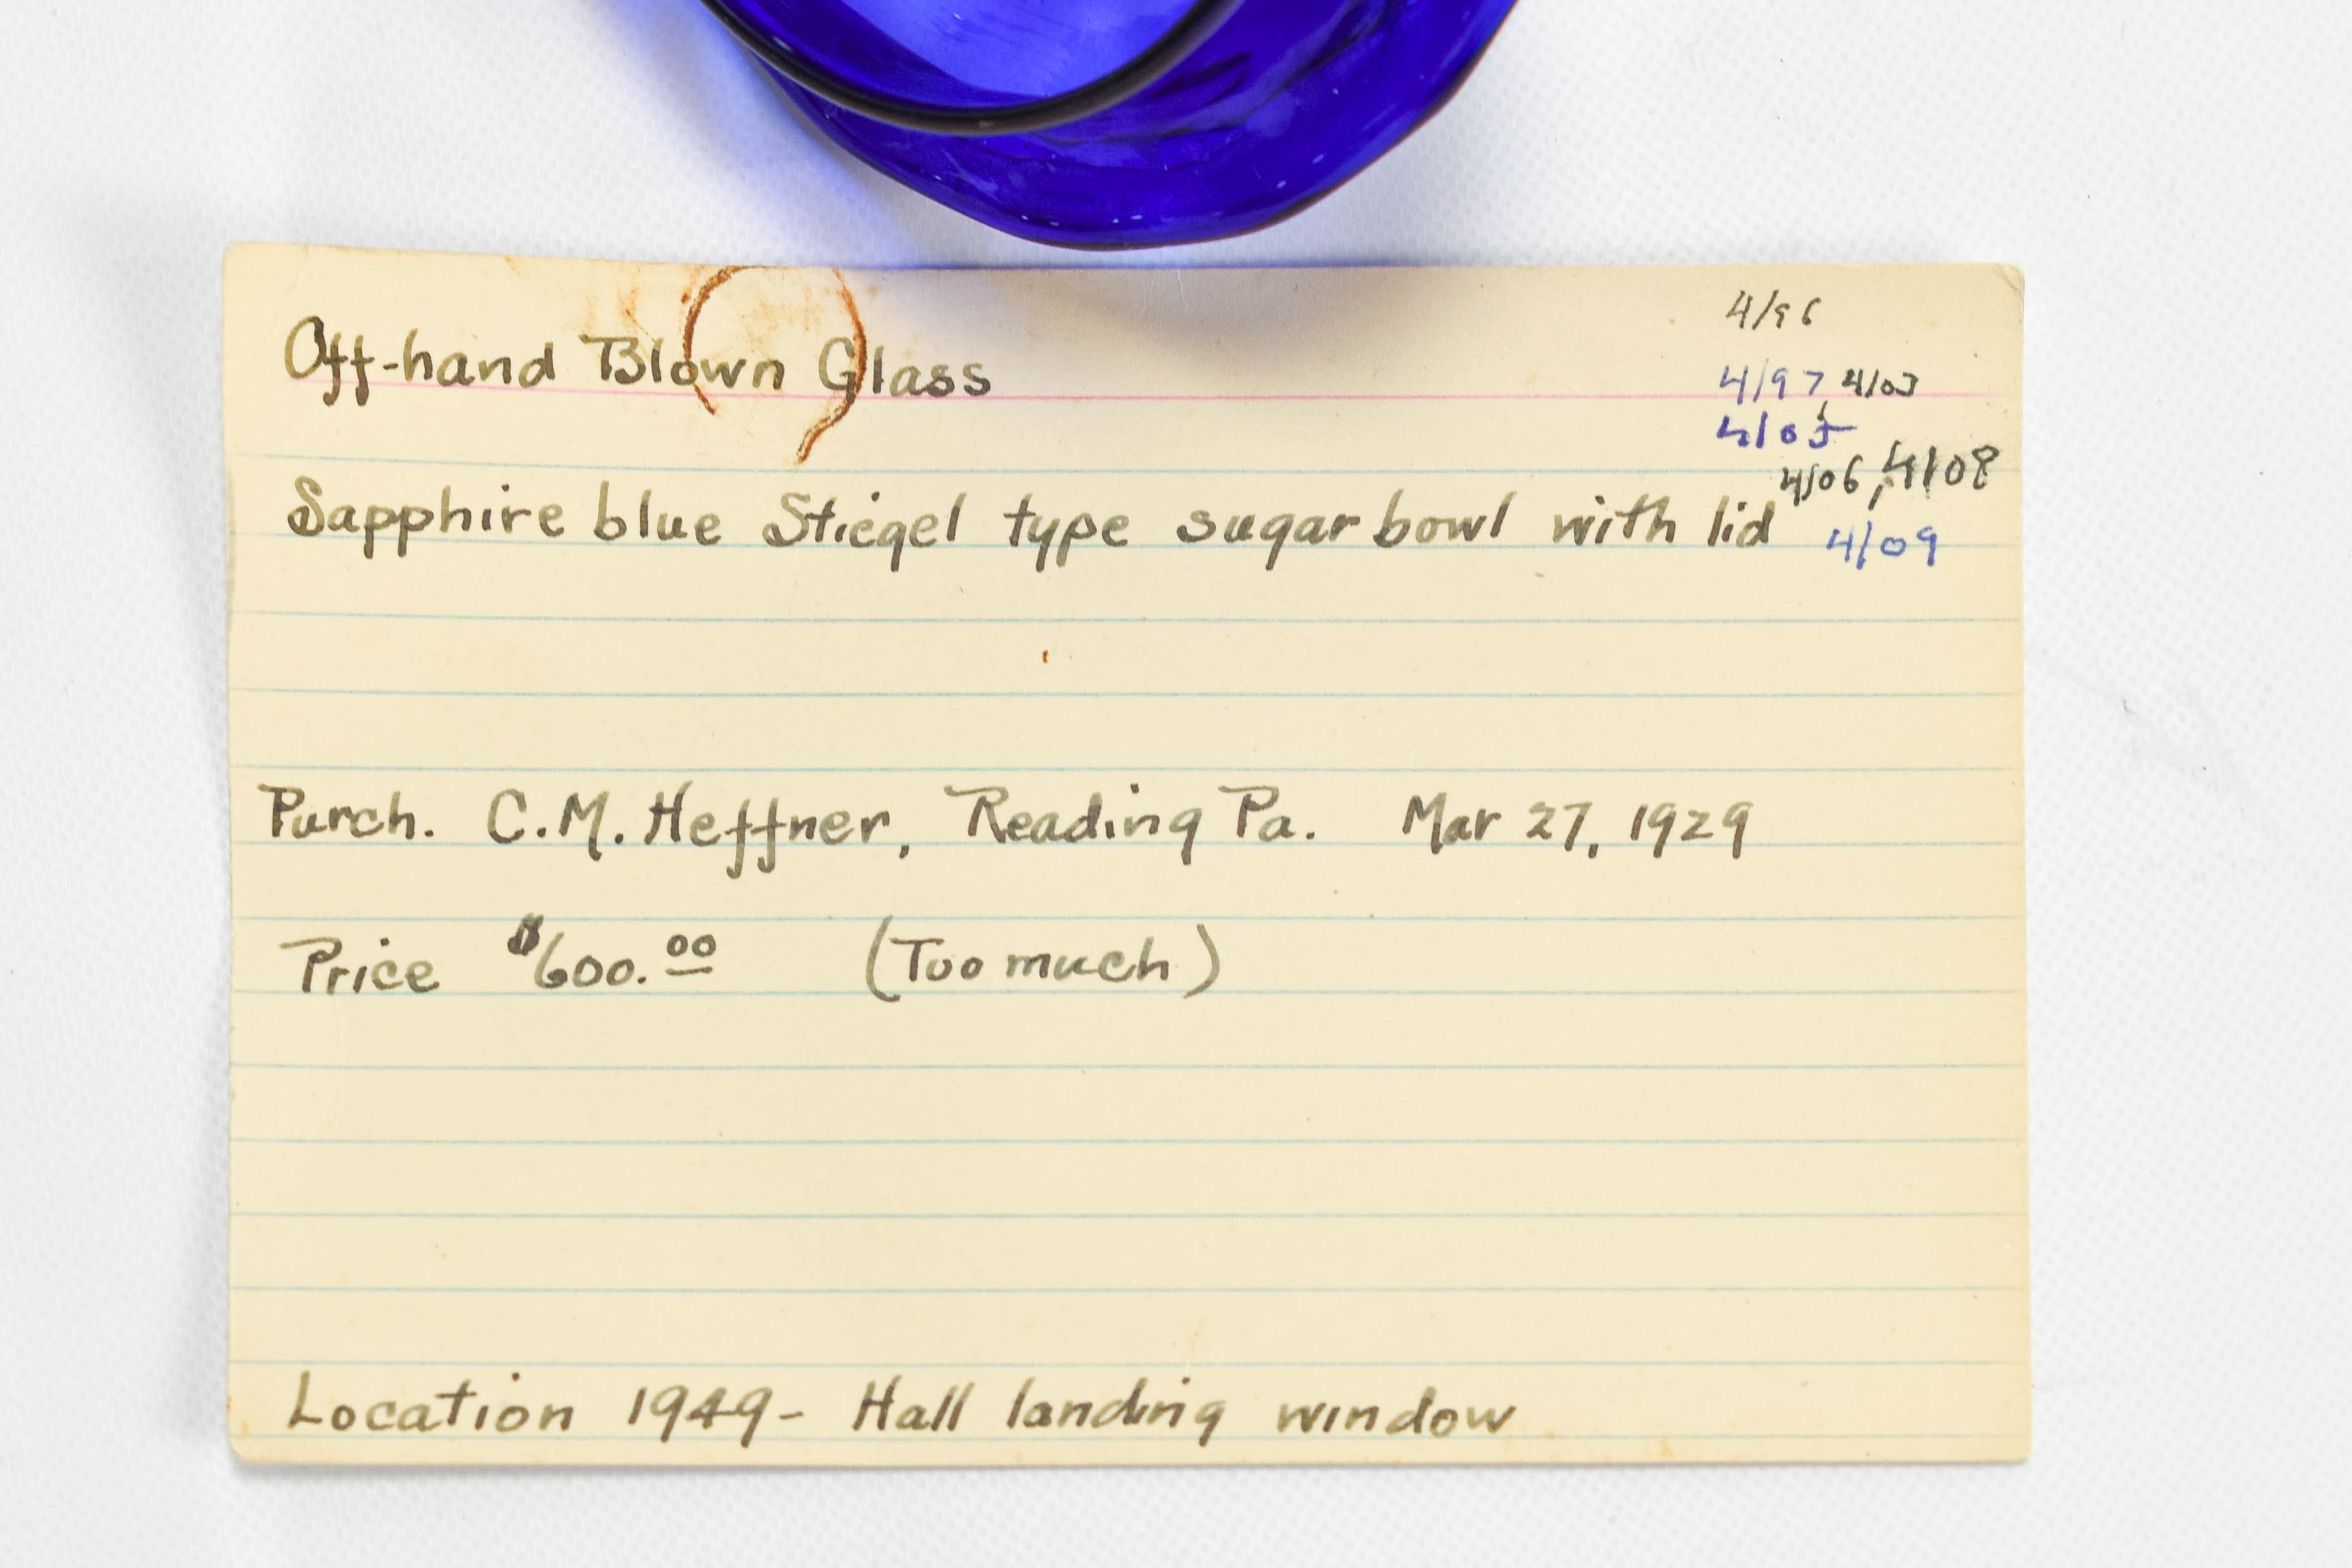 4/96
Off-hand Blown Glass
4/97 4/03
4/05
4/06, 4/08
Sapphire blue Stiegel type sugar bowl with lid
4/09
Purch. C.M. Heffner, Reading Pa. Mar 27, 1929
Price $600.00 (Too much)
Location 1949- Hall landing window